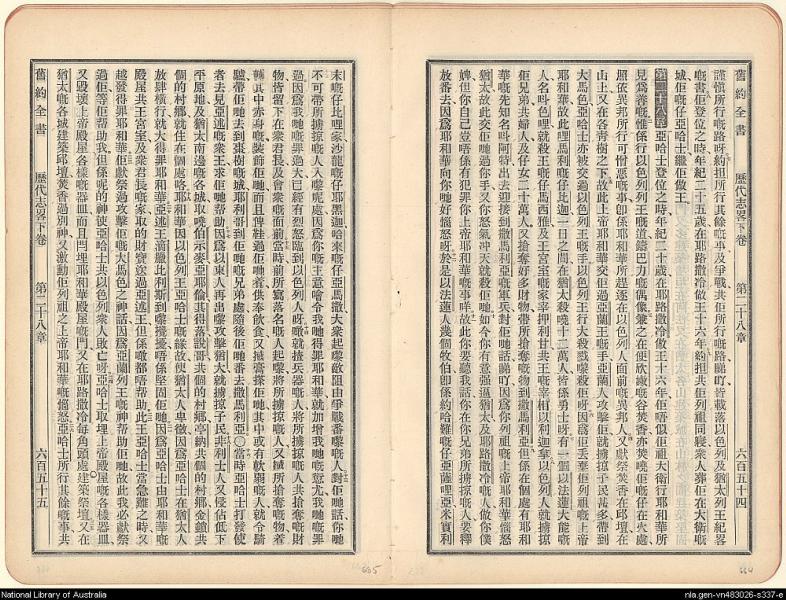 舊約全書 歷代志畧下卷 第二十八章 六百五十四
謹慎所行嘅路呀約担所行其餘嘅事及爭戰共佢所行嘅路睇吖皆載落以色列及猶太列王紀畧
嘅書佢登位之時年紀二十五歲在耶路撒冷做王十六年約担共佢列祖同寢衆人葬佢在大衛嘅
城佢嘅仔亞哈士繼佢做王
第二十八章亞哈士登位之時年紀二十歲在耶路撒冷做王十六年佢唔似佢祖大衛行耶和華所
見爲善嘅惟係行以色列列王嘅道鑄巴力嘅偶像
照依異邦所行可憎惡嘅事即係耶和華所趕逐在以色列人面前嘅異邦人又獻祭焚香在邱壇在
山上又在各青樹之下故此上帝耶和華交佢過亞蘭王嘅手亞蘭人攻擊佢就擄掠子民甚多帶到
大馬色亞哈士亦被交過以色列王嘅手以色列王行大殺戮
耶和華故此利馬利嘅仔比迦一日之間在猶太殺曉十二萬人皆係勇士呀有一個以法蓮大能嘅
人名叫色哩就殺王嘅仔馬西雅及王宮室嘅家宰押利甘共王嘅宰相以利迦拿以色列人就擄掠
佢兄弟共婦人及仔女二十萬人又搶奪好多財物帶所搶奪嘅物到撒馬利亞但係在個處有耶和
華嘅先知名叫阿特出去迎接到撒馬利亞嘅軍兵對佢哋話睇吖因爲你列祖嘅上帝耶和華惱怒
猶太故此交佢哋過你手又你怒氣冲天就殺佢哋如今你有意强逼猶太及耶路撒冷嘅人做你僕
婢但你自己豈唔係有犯罪你上帝耶和華嘅事咩故此你要聽我話你在你兄弟所擄掠嘅人要釋
放番去因爲耶和華向你哋好惱怒呀於是以法蓮人幾個牧伯即係約哈難嘅仔亞薩哩亞米實利
末嘅仔比哩家沙龍嘅仔耶黑迦哈來嘅仔亞馬撒大衆起嚟敵阻由爭戰番嚟嘅人對佢哋話你哋
不可帶所擄掠嘅人入嚟呢處因爲你嘅主意噲令我哋得罪耶和華就加增我哋嘅愆尤我哋嘅罪
過因爲我哋嘅罪過大已經有烈怒臨到以色列人呀噉就揸兵器嘅人將所擄掠嘅人共搶奪嘅財
物皆留下在衆君長及會衆嘅面前當時前所寫落名嘅人起嚟將所擄掠嘅人又搣所搶奪嘅物着
其中赤身嘅裝飾佢哋而且俾鞋過佢哋着供奉飲食又搣膏搽佢哋其中或有軟弱嘅人就令騎
驢帶佢哋去到棗樹嘅城耶利哥到佢哋嘅兄弟處隨後佢哋番去撒馬利亞〇當時亞哈士打發使
者去見亞述嘅衆王求佢哋幫助因爲以東人再出嚟攻擊猶大就擄掠子民非利士人又侵佔低下
平原地及猶太南邊嘅各城取曉伯示麥亞耶倫其得落說哥共個的村鄉亭納共個的村鄉金鎖共
個的村鄉就住在個處咯耶和華因以色列王亞哈士嘅緣故使猶太人卑微因爲亞哈士在猶太人
放肆橫行就大得罪耶和華亞述王滴臘比利斯到嚟擾擾唔係堅固佢哋因爲亞哈士由耶和華嘅
殿屋共王宮室及衆君長嘅家取的財寶送過亞述王但係噉都唔幫助此王亞哈士當急難之時又
越發得罪耶和華佢獻祭過攻擊佢嘅大馬色之神話因爲亞蘭列王嘅神幫助佢哋故此我必獻祭
過佢等佢幫助我但係呢的神使亞哈士共以色列衆人敗亡呀亞哈士取埋上帝殿屋嘅各樣器皿
又毀壞上帝殿屋各樣嘅器皿而且閂埋耶和華殿屋嘅門又在耶路撒冷每角頭處建築祭壇又在
猶太嘅各城建築邱壇焚香過別神又激動佢列祖之上帝耶和華嘅惱怒亞哈士所行其餘嘅事共
舊約全書 歷代志畧下卷 第二十八章 六百五十五
665
664
National Library of Australia
nla.gen-vn483026-s337-e